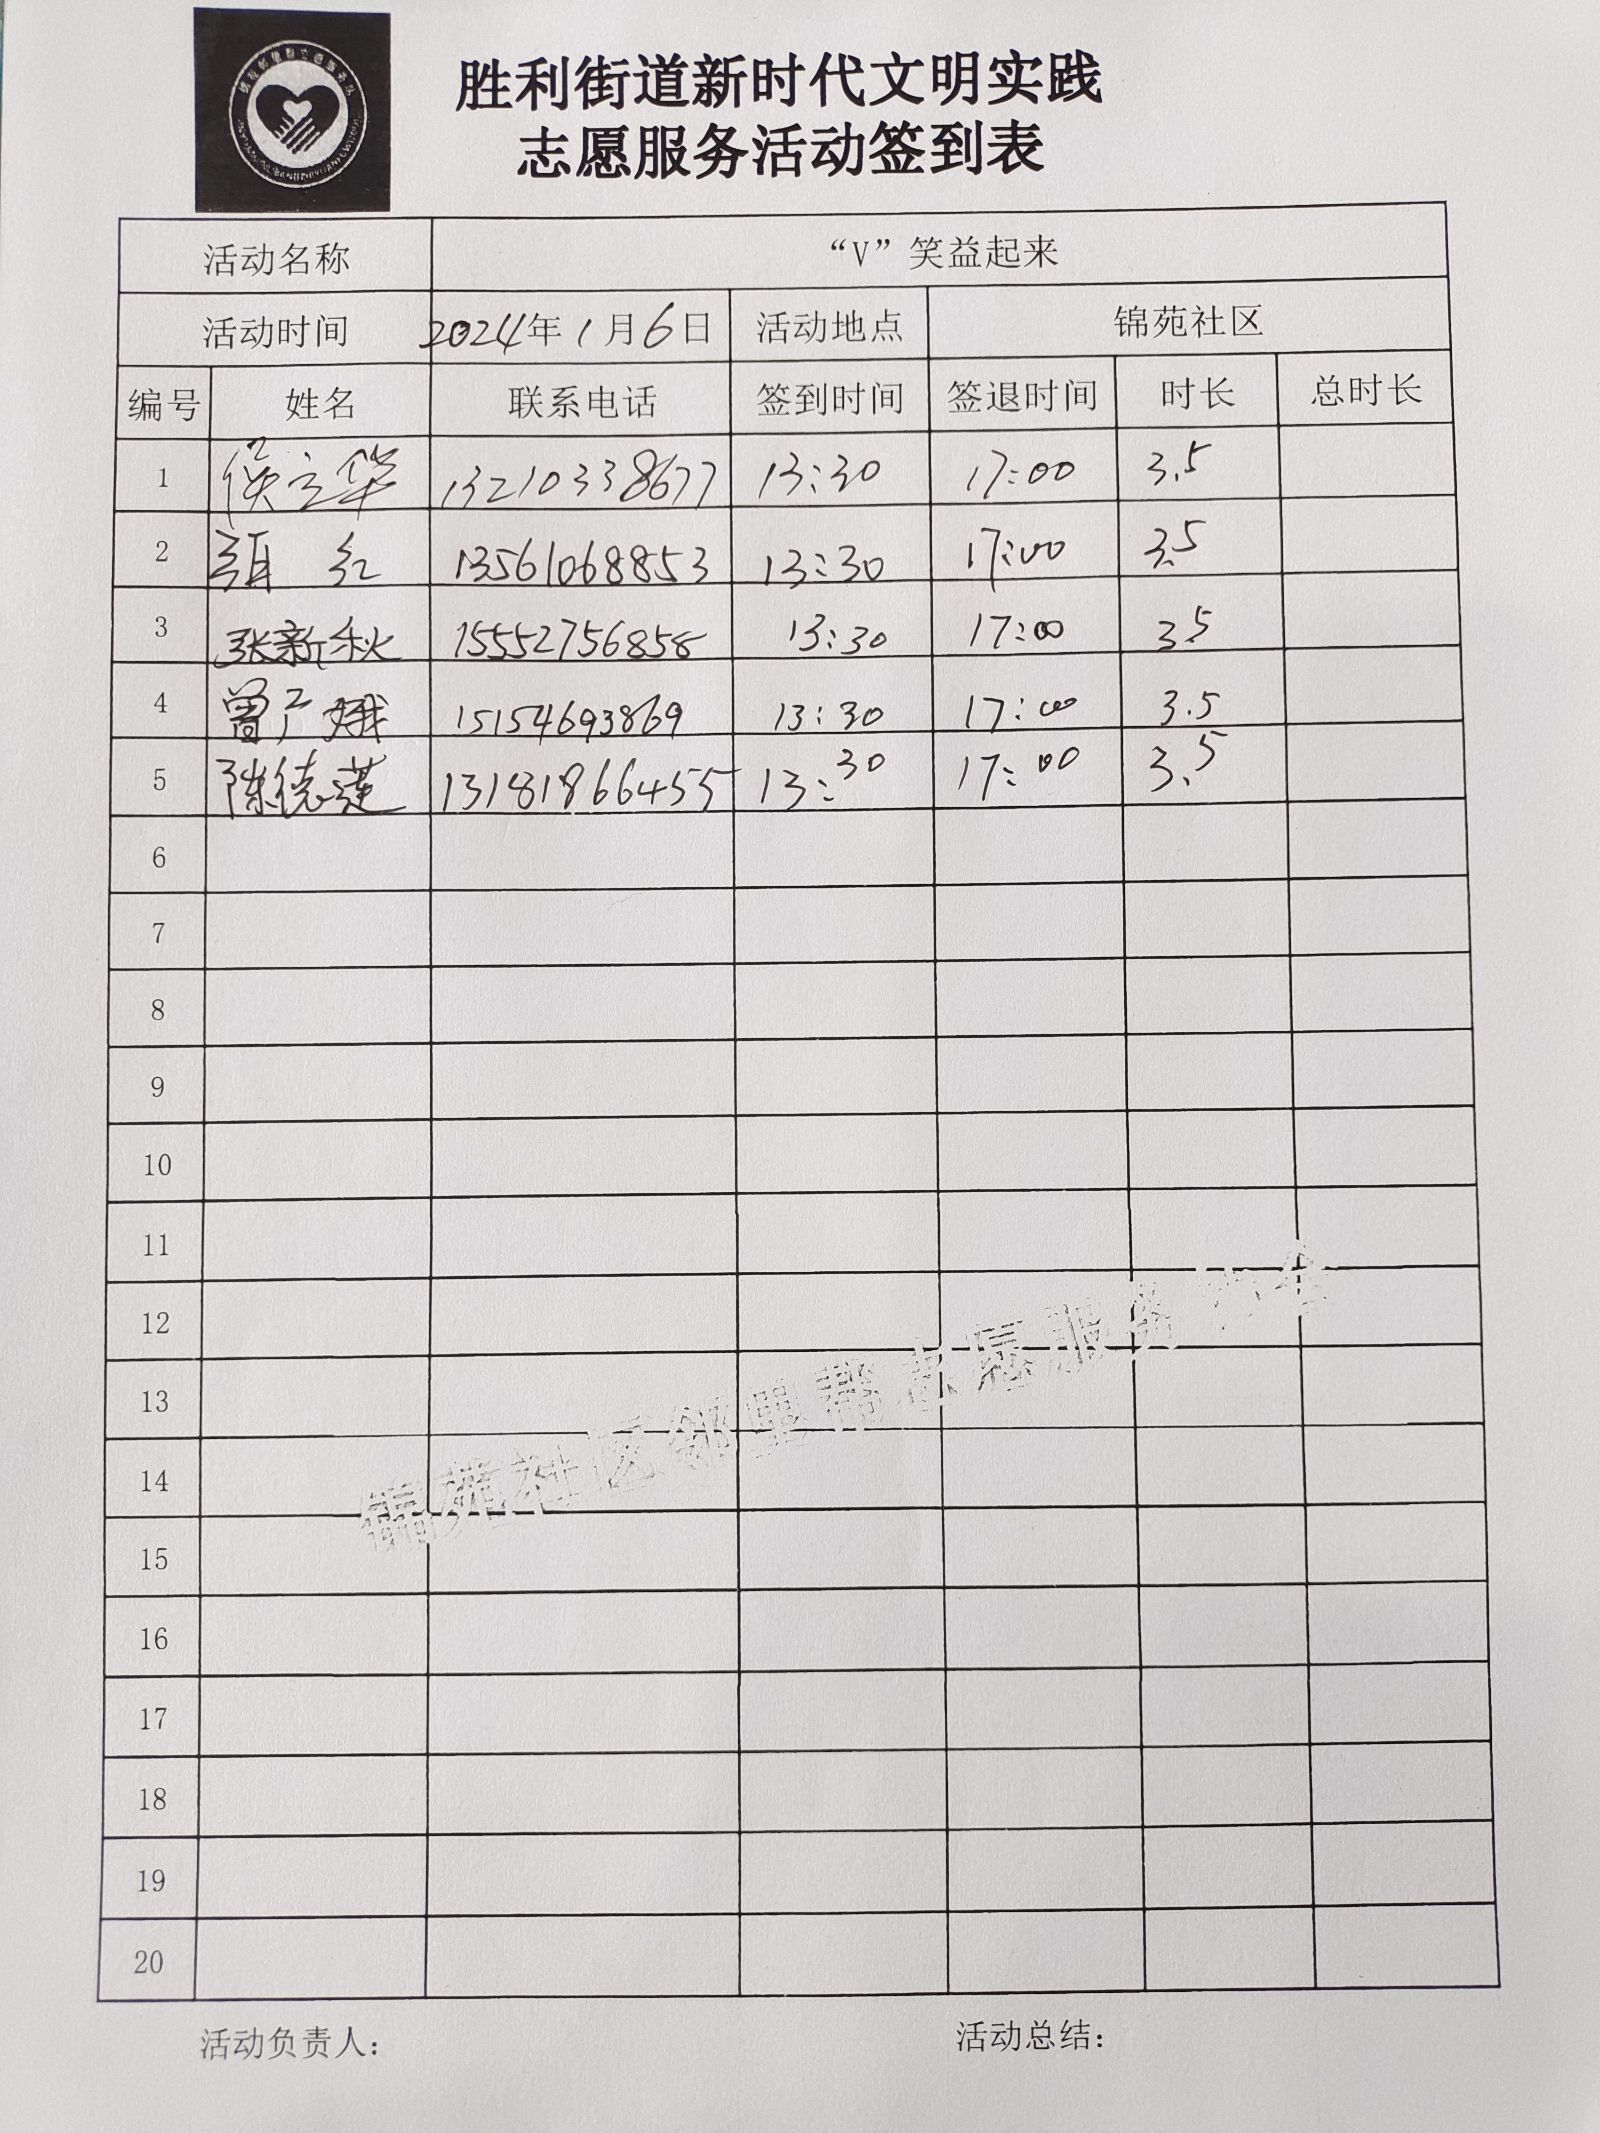 胜利街道新时代文明实践
志愿服务活动签到表
活动名称 “V”笑益起来
活动时间 2024年1月6日 活动地点 锦苑社区
编号 姓名 联系电话 签到时间 签退时间 时长 总时长
1 侯立华 13210338677 13:30 17:00 3.5
2 红 13561068853 13:30 17:00 3.5
3 张新秋 15552756858 13:30 17:00 3.5
4 曾广娥 15154693869 13:30 17:00 3.5
5 陈德莲 13181866455 13:30 17:00 3.5
6
7
8
9
10
11
12
13
14
15
16
17
18
19
20
锦苑社区邻里帮志愿服务协会
活动负责人： 活动总结：